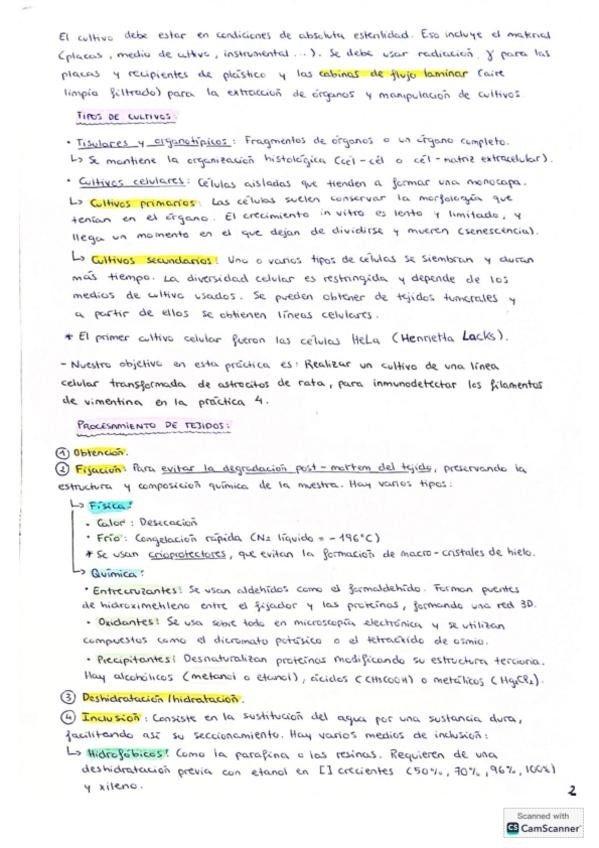 El cultivo debe estar en condiciones de absoluta esterilidad. Eso incluye el material
(placas, medio de cultivo, instrumental...). Se debe usar radiación γ para las
placas y recipientes de plástico y las cabinas de flujo laminar (aire
limpio filtrado) para la extracción de órganos y manipulación de cultivos.
TIPOS DE CULTIVOS:
• Tisulares y organotípicos: Fragmentos de órganos o un órgano completo.
↳ Se mantiene la organización histológica (cél-cél o cél-matriz extracelular).
• Cultivos celulares: Células aisladas que tienden a formar una monocapa.
↳ Cultivos primarios: Las células suelen conservar la morfología que
tenían en el órgano. El crecimiento in vitro es lento y limitado, y
llega un momento en el que dejan de dividirse y mueren (senescencia).
↳ Cultivos secundarios: Uno o varios tipos de células se siembran y duran
más tiempo. La diversidad celular es restringida y depende de los
medios de cultivo usados. Se pueden obtener de tejidos tumorales y
a partir de ellos se obtienen líneas celulares.
* El primer cultivo celular fueron las células HeLa (Henrietta Lacks).
- Nuestro objetivo en esta práctica es: Realizar un cultivo de una línea
celular transformada de astrocitos de rata, para inmunodetectar los filamentos
de vimentina en la práctica 4.
PROCESAMIENTO DE TEJIDOS:
① Obtención.
② Fijación: Para evitar la degradación post-mortem del tejido, preservando la
estructura y composición química de la muestra. Hay varios tipos:
↳ Física:
• Calor: Desecación
• Frío: Congelación rápida (N₂ líquido = -196°C)
* Se usan crioprotectores, que evitan la formación de macro-cristales de hielo.
↳ Química:
• Entrecruzantes: Se usan aldehídos como el formaldehído. Forman puentes
de hidroximetileno entre el fijador y las proteínas, formando una red 3D.
• Oxidantes: Se usa sobre todo en microscopía electrónica y se utilizan
compuestos como el dicromato potásico o el tetraóxido de osmio.
• Precipitantes: Desnaturalizan proteínas modificando su estructura terciaria.
Hay alcohólicos (metanol o etanol), ácidos (CH₃COOH) o metálicos (HgCl₂).
③ Deshidratación/hidratación.
④ Inclusión: Consiste en la sustitución del agua por una sustancia dura,
facilitando así su seccionamiento. Hay varios medios de inclusión:
↳ Hidrofóbicos: Como la parafina o las resinas. Requieren de una
deshidratación previa con etanol en [] crecientes (50%, 70%, 96%, 100%)
y xileno.
2
Scanned with
CS CamScanner